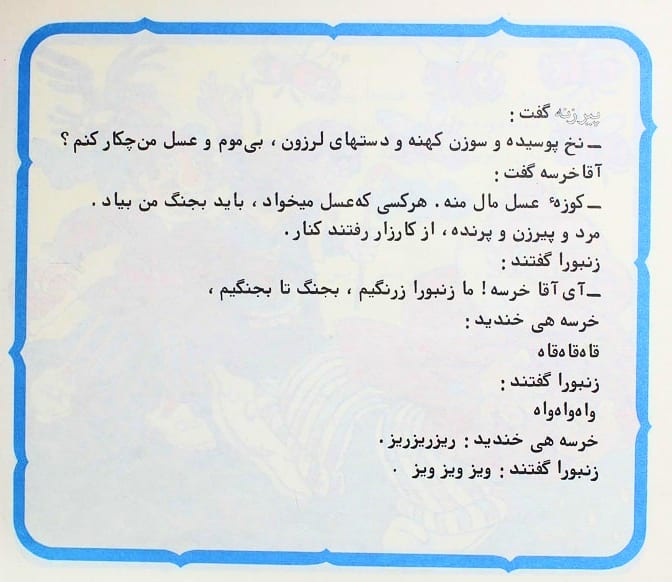 پیرزنه گفت :
ــ نخ پوسیده و سوزن کهنه و دستهای لرزون ، بی‌موم و عسل من‌چکار کنم ؟
آقاخرسه گفت :
ــ کوزهٔ عسل مال منه . هرکسی که‌عسل میخواد ، باید بجنگ من بیاد .
مرد و پیرزن و پرنده ، از کارزار رفتند کنار .
زنبورا گفتند :
ــ آی آقا خرسه ! ما زنبورا زرنگیم ، بجنگ تا بجنگیم ،
خرسه هی خندید :
قاه‌قاه‌قاه
زنبورا گفتند :
واه‌واه‌واه
خرسه هی خندید : ریزریزریز .
زنبورا گفتند : ویز ویز ویز .